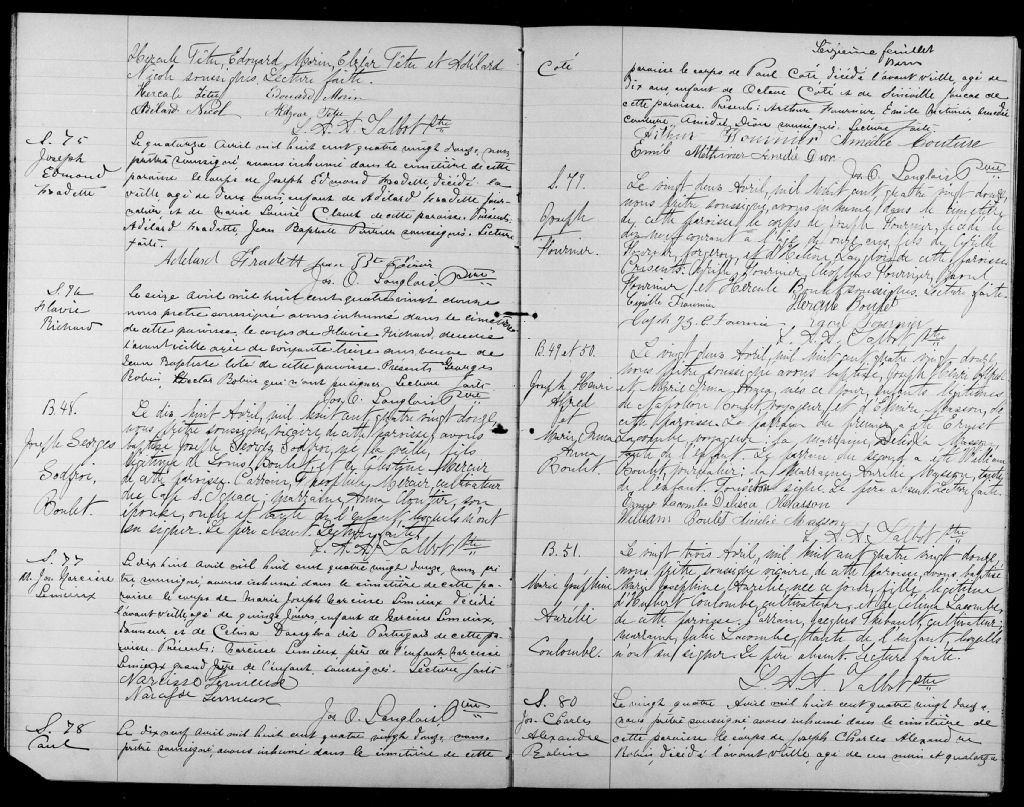 Hercule Têtu, Edouard Morin, Elzéar Têtu et Adélard
Nicol soussignés. Lecture faite.
Hercule Têtu Edouard Morin
Adélard Nicol Têtu
L. A. A. Talbot Ptre
S. 75
Joseph
Edmond
Fradette
Le quatorze Avril mil huit cent quatre vingt douze, nous
prêtre soussigné avons inhumé dans le cimetière de cette
paroisse le corps de Joseph Edmond Fradette, décédé la
veille, agé de deux mois, enfant de Adélard Fradette jour-
nalier, et de Marie Louise de cette paroisse. Présents:
Adélard Fradette, Jean Baptiste soussignés. Lecture
faite.
Adelard Fradett Jean Bte
Jos. O. Langlais Ptre
S. 76
Flavie
Richard
Le seize Avril mil huit cent quatre vingt douze
nous prêtre soussigné avons inhumé dans le cimetière
de cette paroisse, le corps de Flavie Richard, décédée
l'avant veille agée de soixante treize ans veuve de
Jean Baptiste Coté de cette paroisse. Présents Georges
Robin, Hector Robin qui n'ont pu signer. Lecture faite
Jos. O. Langlais Ptre
B. 48.
Joseph Georges
Godfroi,
Boulet.
Le dix huit Avril, mil huit cent quatre vingt douze,
nous, prêtre soussigné, vicaire de cette paroisse, avons
baptisé Joseph Georges Godfroi, né la veille, fils
légitime de Louis Boulet et de Célestine Mercier
de cette paroisse. Parrain, Théophile Mercier, cultivateur
du Cap S. Ignace; marraine Anna Cloutier, son
épouse, oncle et tante de l'enfant, lesquels n'ont
su signer. Le père absent. Lecture faite.
L. A. A. Talbot Ptre
S. 77
M. Jos. Narcisse
Lemieux
Le dix huit Avril mil huit cent quatre vingt douze, nous prê-
tre soussigné, avons inhumé dans le cimetière de cette pa-
roisse le corps de Marie Joseph Narcisse Lemieux décédé
l'avant veille agé de quinze jours, enfant de Narcisse Lemieux,
tanneur et de Celina Dauphin dit Portugais de cette pa-
roisse. Présents: Narcisse Lemieux père de l'enfant Narcisse
Lemieux grand père de l'enfant, soussignés. Lecture faite
Narcisse Lemieux
Narcisse Lemieux
Jos. O. Langlais, Ptre
S. 78
Paul
Le dix neuf Avril mil huit cent quatre vingt douze, nous
prêtre soussigné, avons inhumé dans le cimetière de cette
Seizième feuillet
Coté
paroisse le corps de Paul Coté, décédé l'avant veille, agé de
dix ans, enfant de Octave Coté et de de
cette paroisse. Présents: Arthur Fournier Emile Methivier, Amédée
Couture, Amédée Dion soussignés. Lecture faite.
Arthur Fournier Amédée Couture
Emile Methivier Amédée Dion
Jos. O. Langlais Ptre
S. 79.
Joseph
Fournier.
Le vingt deux Avril, mil huit cent quatre vingt douze,
nous prêtre soussigné, avons inhumé, dans le cimetière
de cette paroisse, le corps de Joseph Fournier, décédé le
dix neuf courant à l'âge de onze ans, fils de Cyrille
Fournier, forgeron, et d'Hélène Langlois de cette paroisse
Présents: Cyrille Fournier, Cléophas Fournier, Raoul
Fournier et Hercule Boulet soussignés. Lecture faite.
Cyrille Fournier Hercule Boulet
Fournier Raoul Fournier
L. A. A. Talbot Ptre
B. 49 et 50.
Joseph Henri
Alfred
et
Marie Irma
Anna
Boulet.
Le vingt deux Avril, mil huit cent quatre vingt douze,
nous prêtre soussigné avons baptisé, Joseph Henri Alfred
et Marie Irma Anna, nés ce jour, enfants légitimes
de Napoléon Boulet, voyageur et d'Elmire Masson, de
cette paroisse. Le parrain du premier a été Ernest
Lacombe, voyageur; sa marraine, Délicia Masson,
tante de l'enfant. Le parrain du second a été William
Boulet, journalier; la marraine, Aurélie Masson, tante
de l'enfant. signé. Le père absent. Lecture faite.
Ernest Lacombe Delisca Masson
William Boulet Aurélie Masson
L. A. A. Talbot Ptre
B. 51.
Marie Joséphine
Aurélie
Coulombe.
Le vingt trois Avril, mil huit cent quatre vingt douze,
nous prêtre soussigné vicaire de cette paroisse, avons baptisé
Marie Joséphine Aurélie, née ce jour, fille légitime
d'Hubert Coulombe, cultivateur, et de Célina Lacombe,
de cette paroisse. Parrain, Jacques Thibault, cultivateur;
marraine, Julie Lacombe, tante de l'enfant, lesquels
n'ont su signer. Le père absent. Lecture faite.
L. A. A. Talbot Ptre
S. 80
Jos. Charles
Alexandre
Robin
Le vingt quatre Avril mil huit cent quatre vingt douze,
nous prêtre soussigné avons inhumé dans le cimetière de
cette paroisse le corps de Joseph Charles Alexandre
Robin, décédé l'avant veille, agé de un mois et quatorze